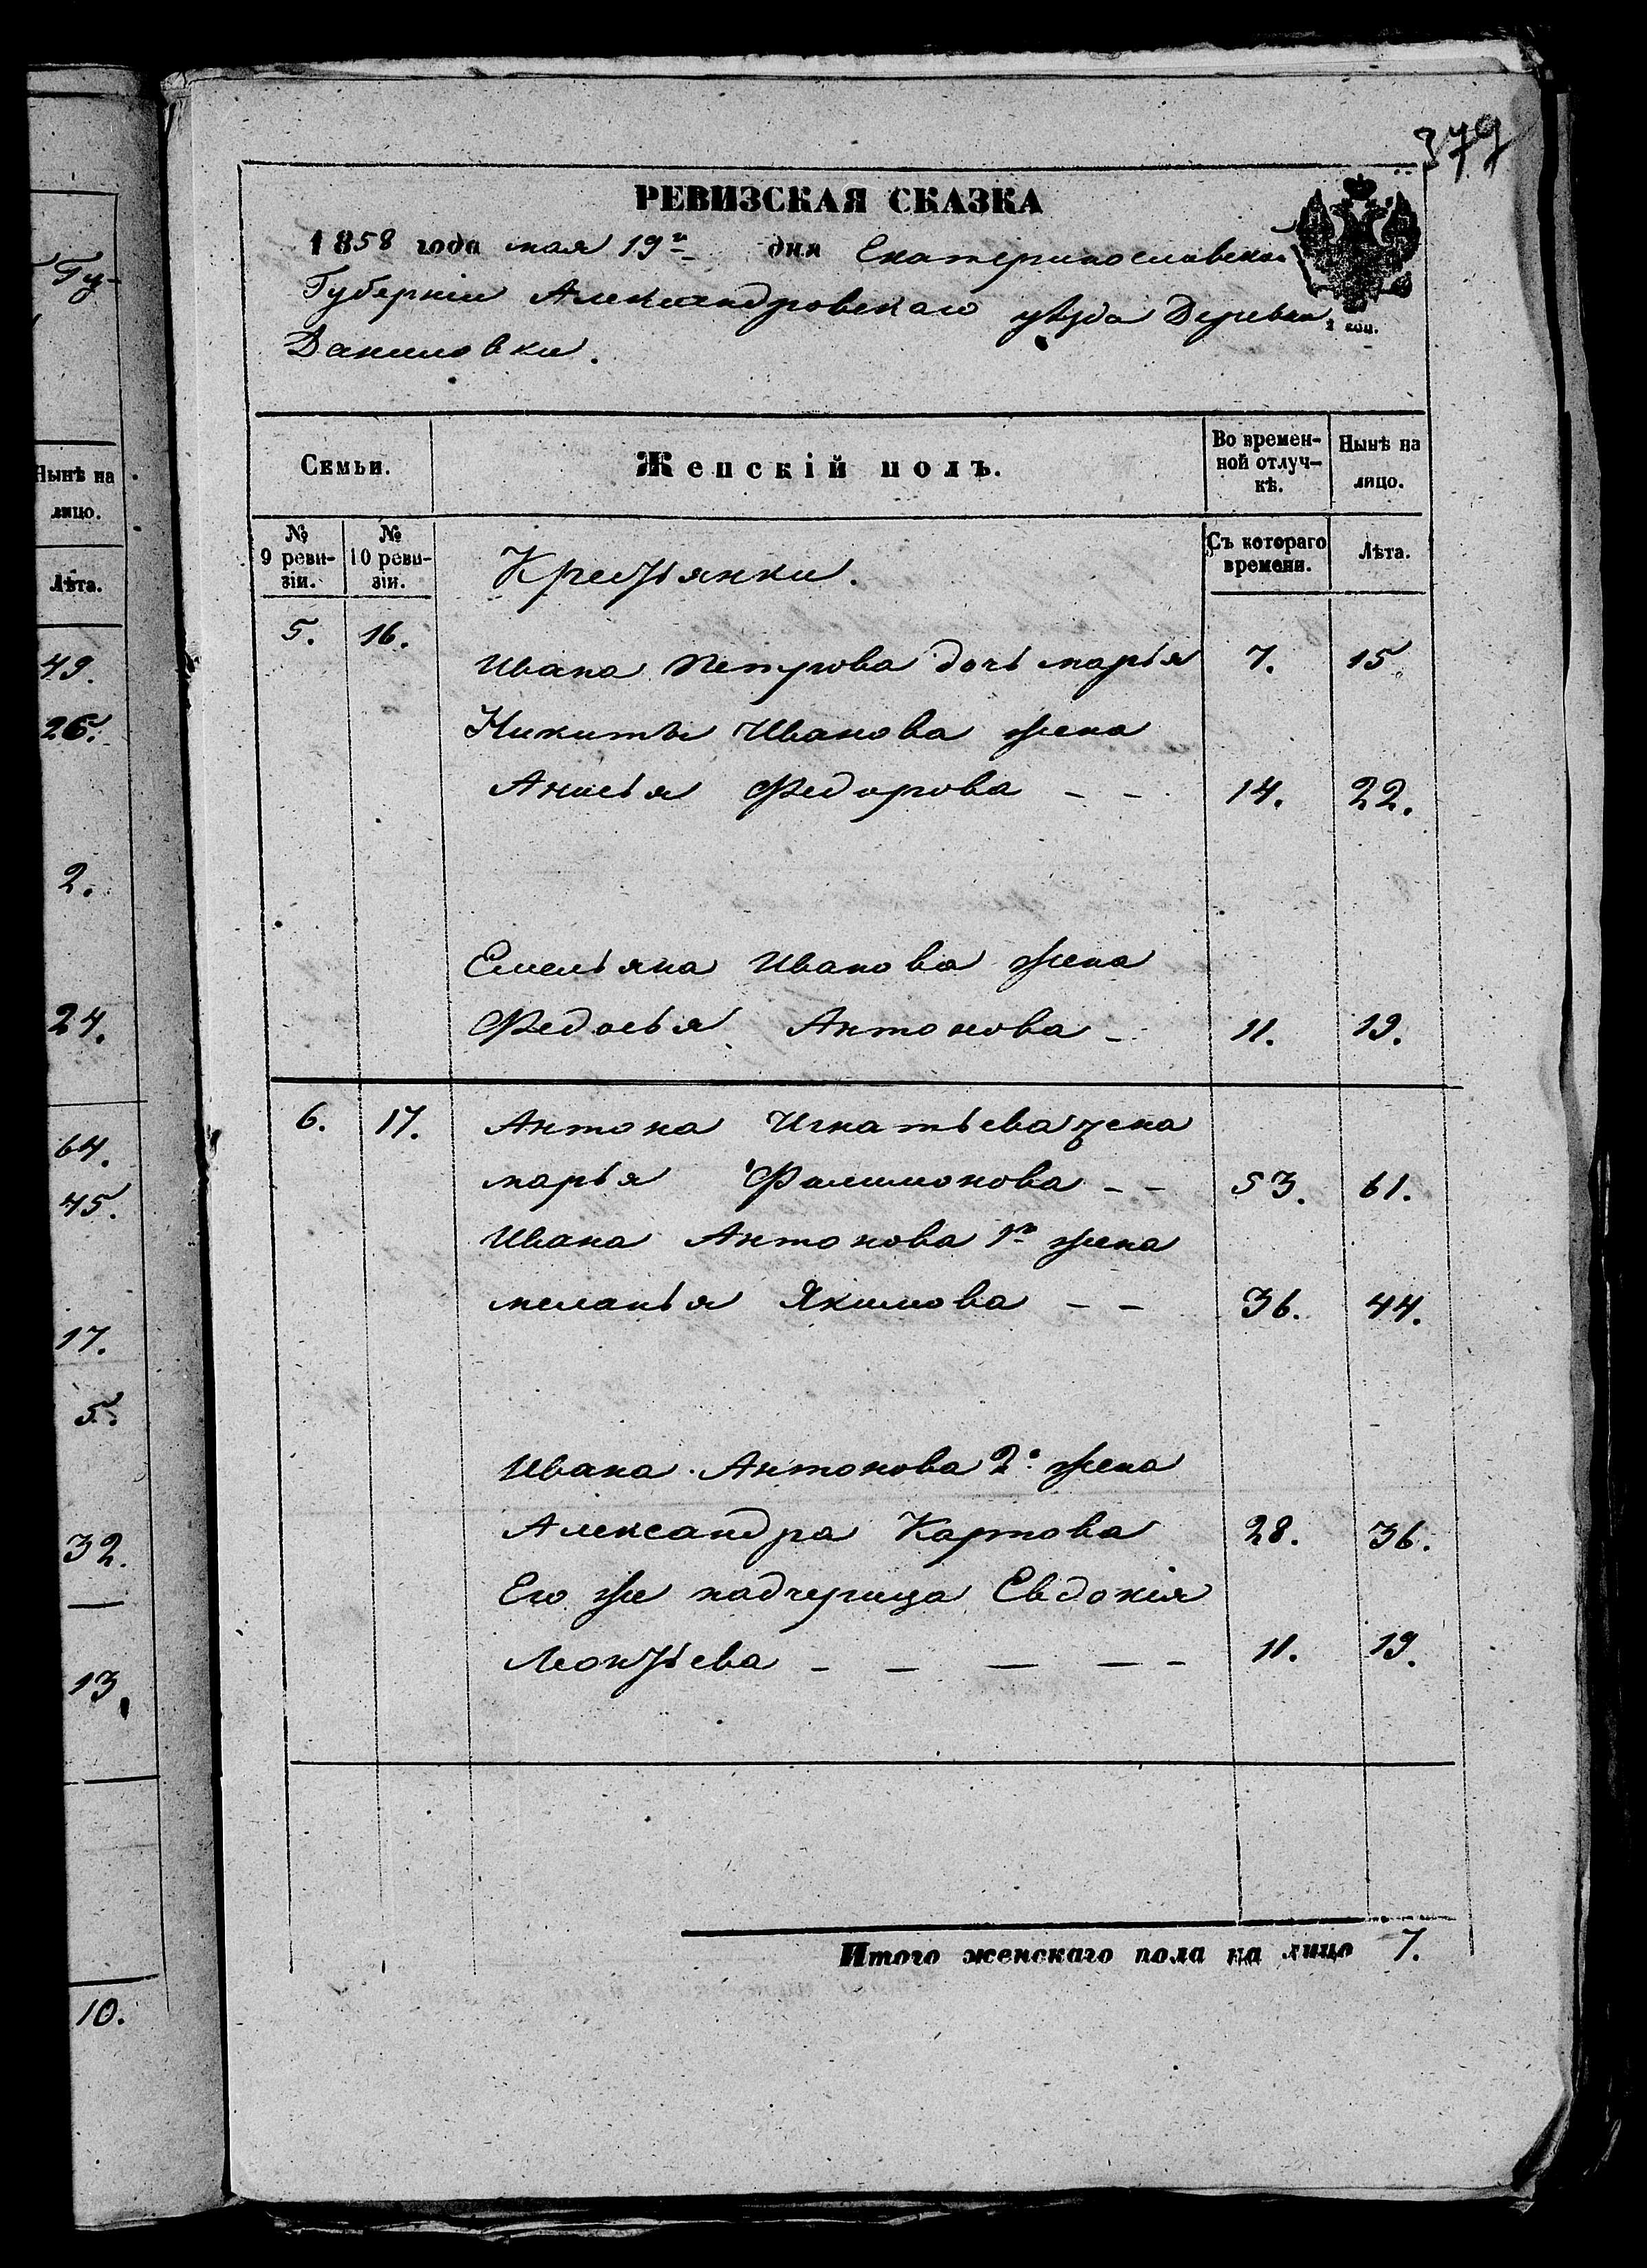 379
РЕВИЗСКАЯ СКАЗКА
1858 года мая 19го дня Екатеринославской
Губерніи Александровскаго уѣзда Деревни
Даниловки.
1 коп.
Семьи.
Женскій полъ.
Во времен-
ной отлуч-
кѣ.
Нынѣ на
лицо.
№
9 реви-
зіи.
№
10 реви-
зіи.
Крестьянки.
Съ котораго
времени.
Лѣта.
5. 16.
Ивана Петрова дочь марья 7. 15.
Никиты Иванова жена
Анисья Федорова - - 14. 22.
Емельяна Иванова жена
Федосья Антонова - 11. 19.
6. 17. Антона Игнатьева жена
марья Филимонова - - 53. 61.
Ивана Антонова 1я жена
меланья Якимова - - 36. 44.
Ивана Антонова 2я жена
Александра Карпова 28. 36.
Его же падчерица Евдокія
Леонтьева - - - - - 11. 19.
Итого женскаго пола на лицо 7.
Гу-
Нынѣ на
лицо.
Лѣта.
49.
26.
2.
24.
64.
45.
17.
5.
32.
13.
10.